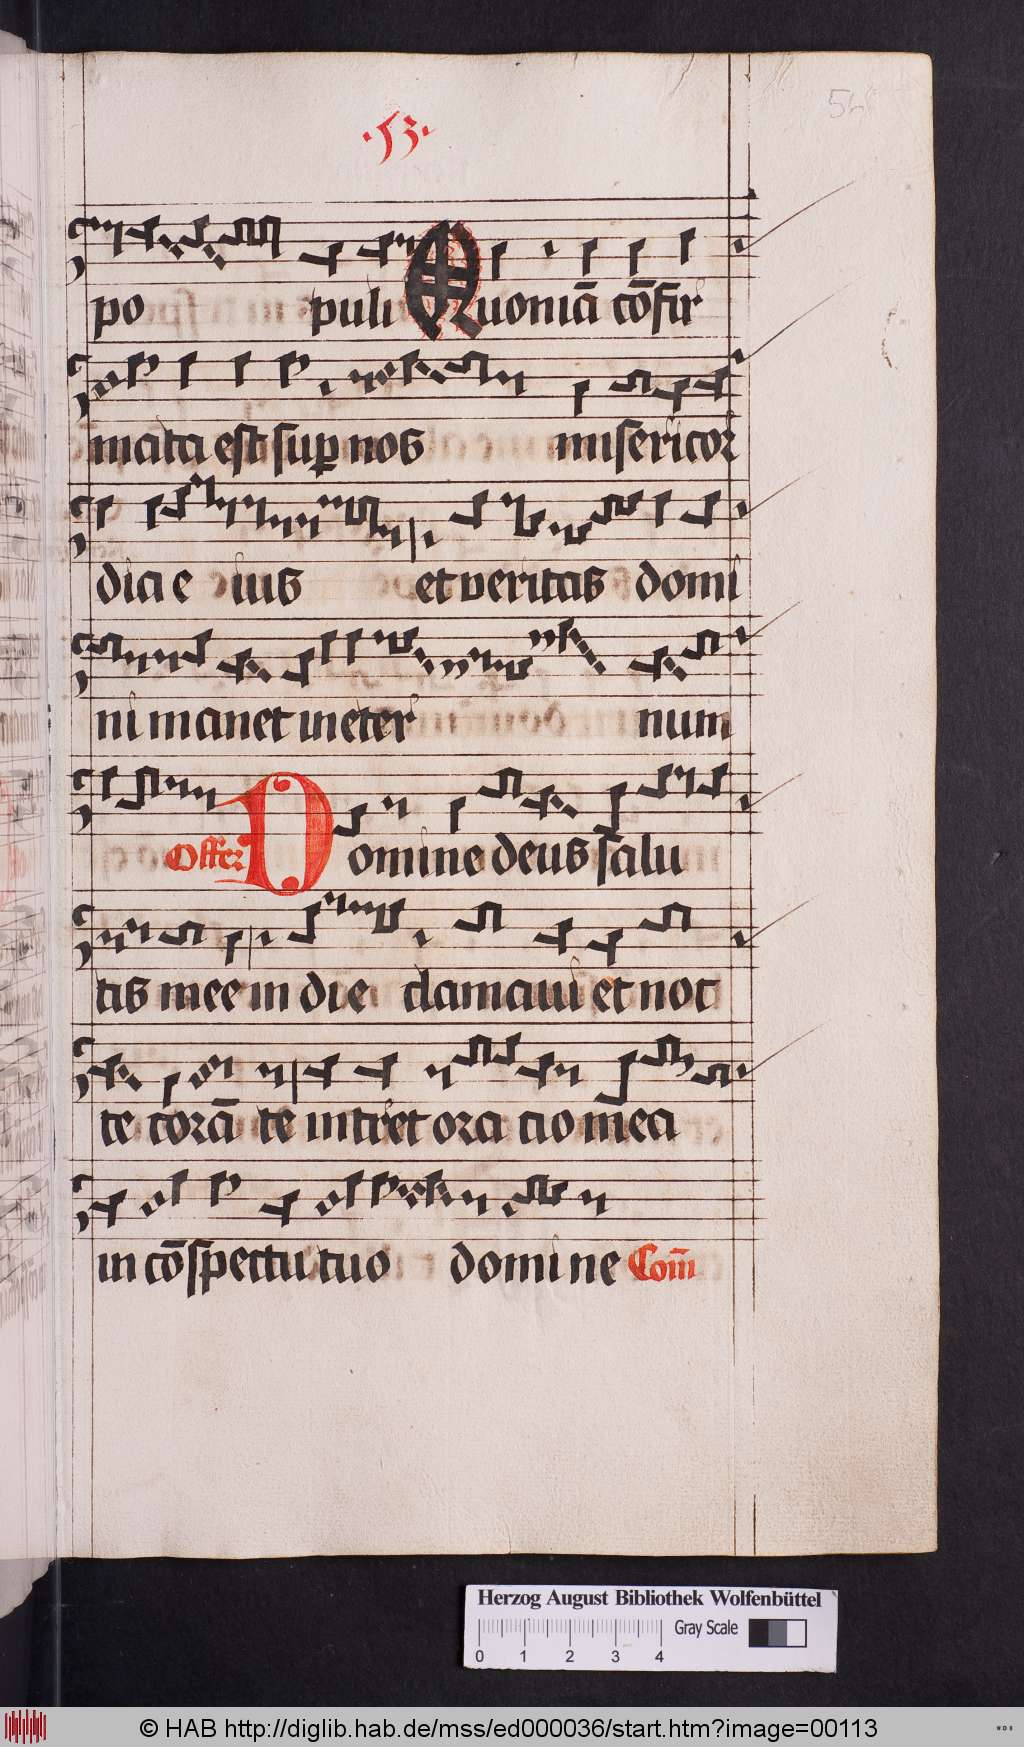 ·53·
po puli Quoniā cōfir
mata est suꝑ nos misericor
dia e ius et veritas domi
ni manet in eter num
Offer Domine deus salu
tis mee in die clamaui et noc
te corā te intret ora tio mea
in cōspectu tuo domine Com̄
Herzog August Bibliothek Wolfenbüttel
Gray Scale
0 1 2 3 4
© HAB http://diglib.hab.de/mss/ed000036/start.htm?image=00113